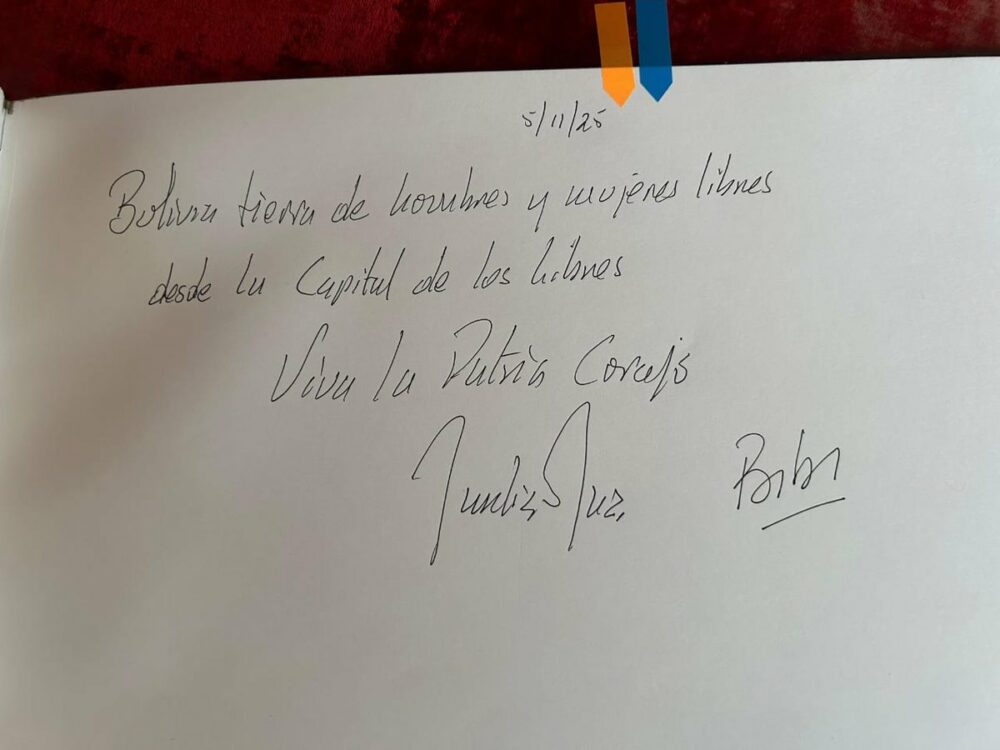 5/11/25
Bolivia tierra de hombres y mujeres libres
desde la Capital de los libres
Viva la Patria Carajo